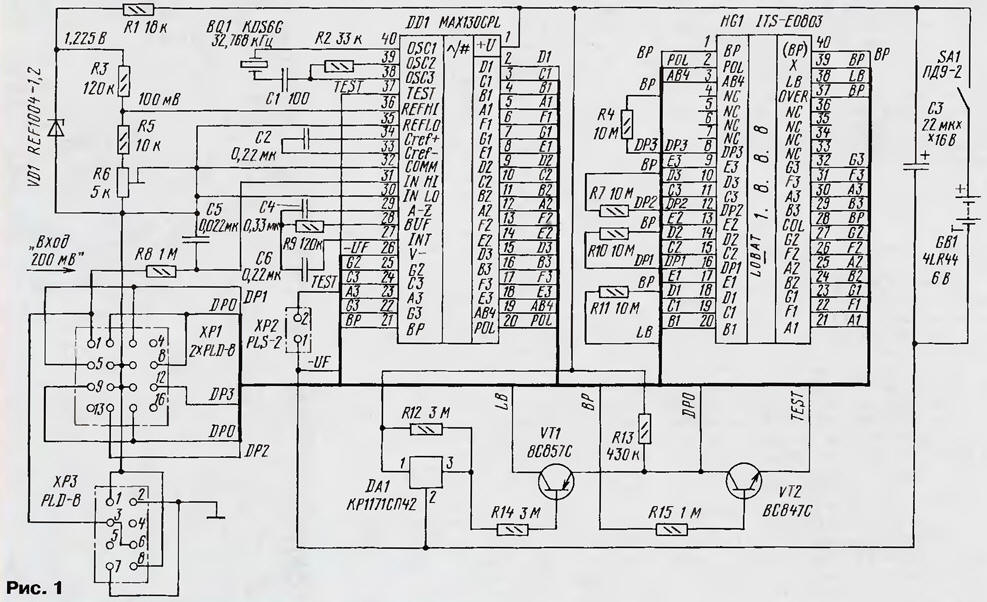 R1 18 к
1,225 В
R3
120 к
100 мВ
R5
10 к
R6
5 к
VD1 REF1004-1,2
„Вход
200 мВ"
R8 1 М
BQ1 KDS6G
32,768 кГц
R2 33 к
C1 100
TEST
C2
0,22 мк
C5
0,022 мк
C4
0,33 мк
R9 120к
C6
0,22 мк
TEST
DD1 MAX130CPL
^/#
+U
40 OSC1
39 OSC2
38 OSC3
37 TEST
36 REFHI
35 REFLO
34 Cref+
33 Cref-
32 COMM
31 IN HI
30 IN LO
29 A-Z
28 BUF
27 INT
-UF 26 V-
G2 25 G2
C3 24 C3
A3 23 A3
G3 22 G3
BP 21 BP
1
D1 2 D1
C1 3 C1
B1 4 B1
A1 5 A1
F1 6 F1
G1 7 G1
E1 8 E1
D2 9 D2
C2 10 C2
B2 11 B2
A2 12 A2
F2 13 F2
E2 14 E2
D3 15 D3
B3 16 B3
F3 17 F3
E3 18 E3
AB4 19 AB4
POL 20 POL
HG1 ITS-E0803
LOBAT 1. 8. 8. 8
BP 1 BP
POL 2 POL
AB4 3 AB4
4 NC
5 NC
6 NC
7 NC
DP3 8 DP3
E3 9 E3
D3 10 D3
C3 11 C3
DP2 12 DP2
E2 13 E2
D2 14 D2
C2 15 C2
DP1 16 DP1
E1 17 E1
D1 18 D1
C1 19 C1
B1 20 B1
(BP) 40 BP
X 39 BP
LB 38 LB
OVER 37 BP
NC 36
NC 35
NC 34
NC 33
G3 32 G3
F3 31 F3
A3 30 A3
B3 29 B3
COL 28 BP
G2 27 G2
F2 26 F2
A2 25 A2
B2 24 B2
G1 23 G1
F1 22 F1
A1 21 A1
BP
R4
10 М
DP3
BP
R7 10 М
DP2
BP
R10 10М
DP1
BP
R11 10 М
LB
SA1
ПД9-2
C3
22 мк×
×16 В
+
+
GB1
4LR44
6 В
DP1
DP0
XP1
2×PLD-8
1 4
5 8
9 12
13 16
DP3
DP0
DP2
XP2
PLS-2
2
1
-UF
XP3
PLD-8
1 2
3 4
5 6
7 8
R12 3 М
1 3
2
DA1
КР1171СП42
LB
VT1
BC857C
R14 3 М
BP
R13
430 к
DP0
TEST
VT2
BC847C
R15 1 М
Рис. 1